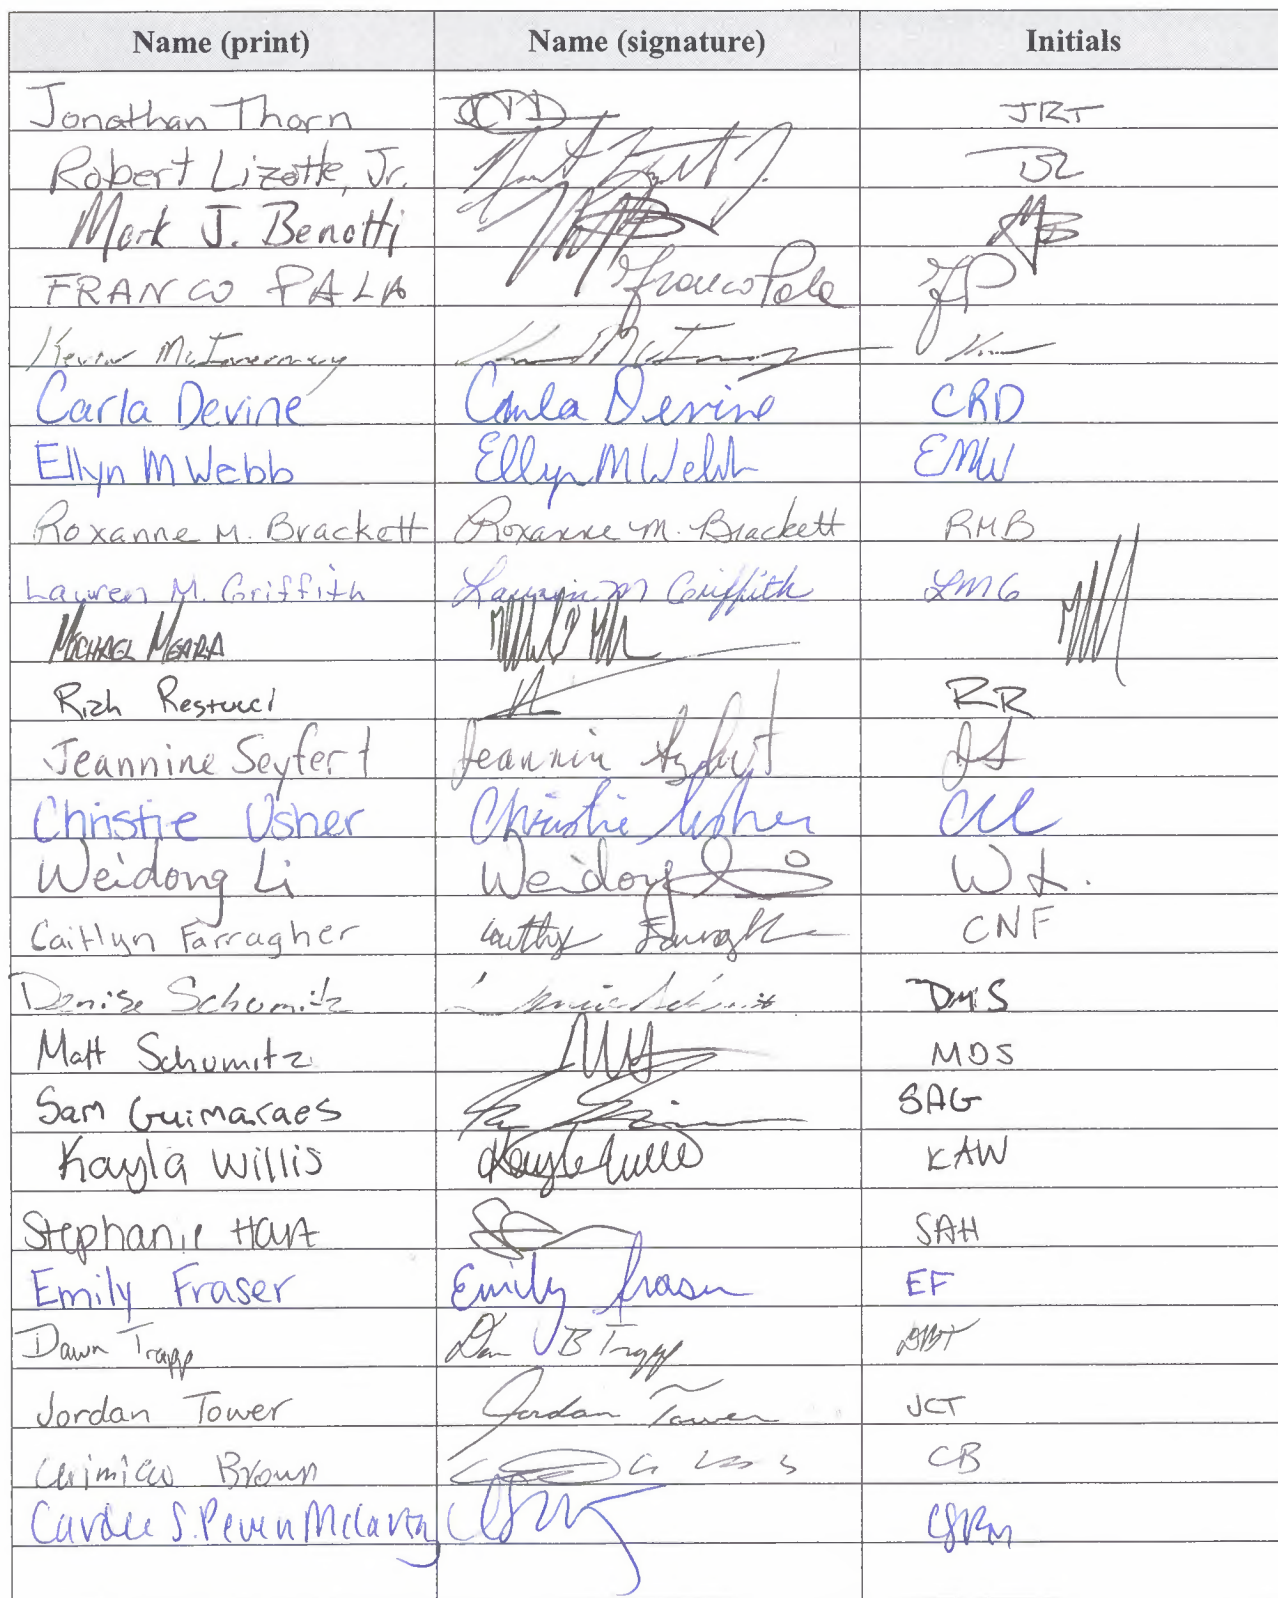 Name (print) Name (signature) Initials
Jonathan Thorn JRT
Robert Lizotte, Jr.
Mark J. Benotti MB
FRANCO PALA Franco Pala FP
Kevin McInerney
Carla Devine Carla Devine CRD
Ellyn M Webb Ellyn M Webb EMW
Roxanne M. Brackett Roxanne M. Brackett RMB
Lauren M. Griffith Lauren M Griffith LMG
MICHAEL MEARA
Rich Restucci RR
Jeannine Seyfert Jeannine Seyfert JS
Christie Usher Christie Usher CU
Weidong Li Weidong Li W L.
Caitlyn Farragher CNF
Denise Schumitz Denise Schumitz DMS
Matt Schumitz MDS
Sam Guimaraes SAG
Kayla Willis Kayla Willis KAW
Stephanie Hart SAH
Emily Fraser Emily Fraser EF
Dawn Trapp Dawn B Trapp DBT
Jordan Tower Jordan Tower JCT
Brown CB